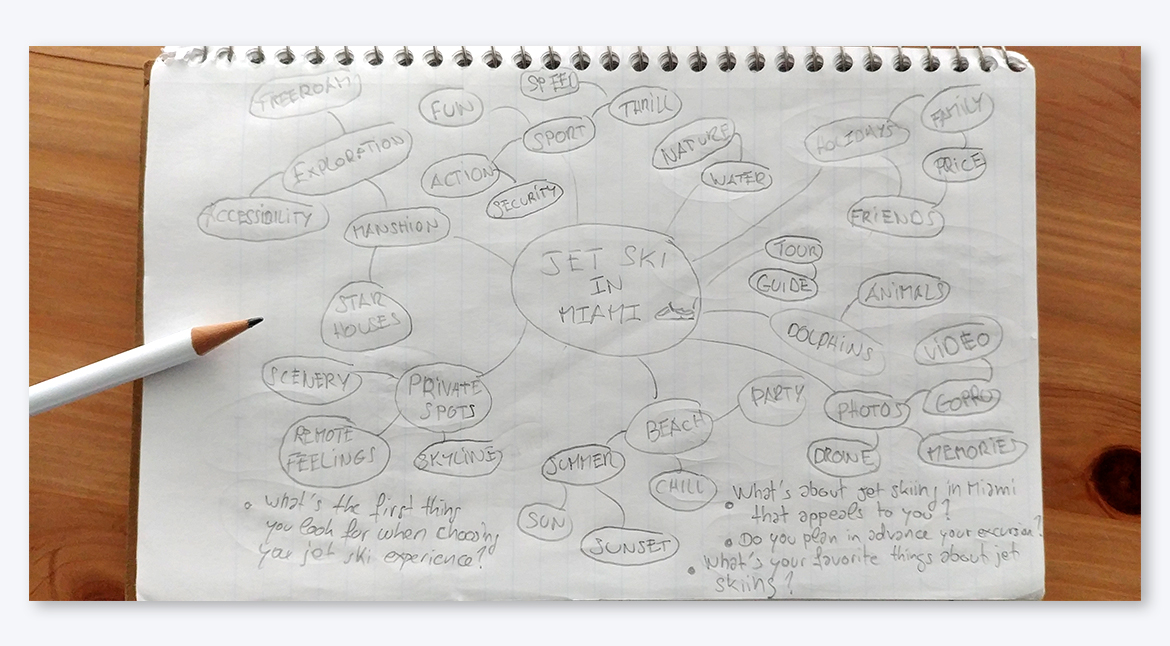 FREEROAM
EXPLORATION
ACCESSIBILITY
MANSHION
STAR
HOUSES
SPEED
FUN
THRILL
SPORT
ACTION
SECURITY
NATURE
WATER
HOLIDAYS
FAMILY
PRICE
FRIENDS
JET SKI
IN
MIAMI
TOUR
GUIDE
ANIMALS
DOLPHINS
VIDEO
GOPRO
PHOTOS
DRONE
MEMORIES
SCENERY
PRIVATE
SPOTS
REMOTE
FEELINGS
SKYLINE
PARTY
BEACH
SUMMER
CHILL
SUN
SUNSET
• What's the first thing
you look for when choosing
your jet ski experience?
• What's about jet skiing in Miami
that appeals to you?
• Do you plan in advance your excursion?
• What's your favorite things about jet
skiing?